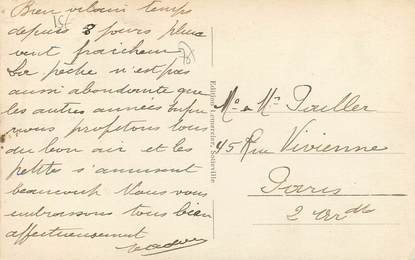 Bien vilain temps
depuis 3 jours pluie
vent fraicheur
La pêche n'est pas
aussi abondante que
les autres années
nous profitons tous
du bon air et les
petites s'amusent
beaucoup Nous vous
embrassons tous bien
affectueusement
Mr & Me Pailler
45 Rue Vivienne
Paris
2 Ardt